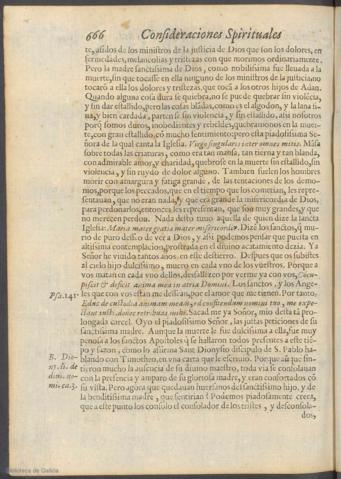 666 Consideraciones Spirituales
te, asidos de los ministros de la justicia de Dios que son los dolores, en
fermedades, melancolias y tristezas con que morimos ordinariamente.
Pero la madre sanctissima de Dios, como nobilissima fue lleuada a la
muerte, sin que tocasse en ella ninguno de los ministros de la justicia no
tocarō a ella los dolores y tristezas, que tocā a los otros hijos de Adan.
Quando alguna cosa dura se quiebra, no se puede quebrar sin violēcia,
y sin dar estallido, pero las cosas blādas, como es el algodon, y la lana fi
na, y bien cardada, parten se sin violencia, y sin estallido, assi nosotros
porq̄ somos duros, inobedientes y rebeldes, quebramonos en la muer-
te, con gran estallido, cō mucho sentimiento, pero esta piadosissima Se-
ñora de la qual canta la Iglesia. Virgo singularis inter omnes mitis. Māsa
sobre todas las criaturas, como era tan mansa, tan tierna y tan blanda,
con admirable amor, y charidad, quebrose en la muerte sin estallido, sin
violencia, y sin ruydo de dolor alguno. Tambien suelen los hombres
morir con amargura y fatiga grande, de las tentaciones de los demo-
nios, porque los peccados, que en el tiempo que los cometian, les repre-
sentauan, que no eran nada, y que era grande la misericordia de Dios,
para perdonarlos, entonces les representan, que son muy grandes, y que
no merecen perdon. Nada desto tuuo aquella de quien dize la sancta
Iglesia. Maria mater gratiæ mater misericordiæ. Dizē los sanctos, q̄ mu-
rio de puro desseo de ver a Dios, y assi podemos pensar que puesta en
altissima contemplacion, prostrada en el diuino acatamiento dezia. Ya
Señor he viuido tantos años, en este destierro. Despues que os subistes
al cielo hijo dulcissimo, muero en cada vno de los vuestros. Porque a
vos matan en cada vno dellos, desfallezco por verme ya con vos, Cōcu-
piscit & deficit anima mea in atria Domini. Los sanctos, y los Ange-
les que con vos estan me dessean, por el amor que me tienen. Por tanto,
Psa. 141. Educ de custodia animam meam, ad confitendum nomini tuo, me expe-
ctant iusti, donec retribuas mihi. Sacad me ya Señor, mio desta tā pro-
longada carcel. Oyo el piadosissimo Señor, las justas peticiones de su
sanctissima madre. Aunque la muerte le fue dulcissima a ella, fue muy
penosa a los sanctos Apostoles q̄ se hallaron todos presentes a este tiē-
B. Dio- po y sazon, como lo afirma Sant Dionysio discipulo de S. Pablo ha-
ny. li. de blando con Timotheo, en vna carta que le escriuio. Porque aū que sin-
diui. no- tieron mucho la ausencia de su diuino maestro, toda via se consolauan
mi. ca. 3. con la presencia y amparo de su gloriosa madre, y eran confortados cō
su vista. Pero agora que quedauan huerfanos del sanctissimo hijo, y de
la benditissima madre, que sentirian? Podemos piadosamente creer,
que a este punto los consolo el consolador de los tristes, y desconsola-
dos,
Biblioteca de Galicia